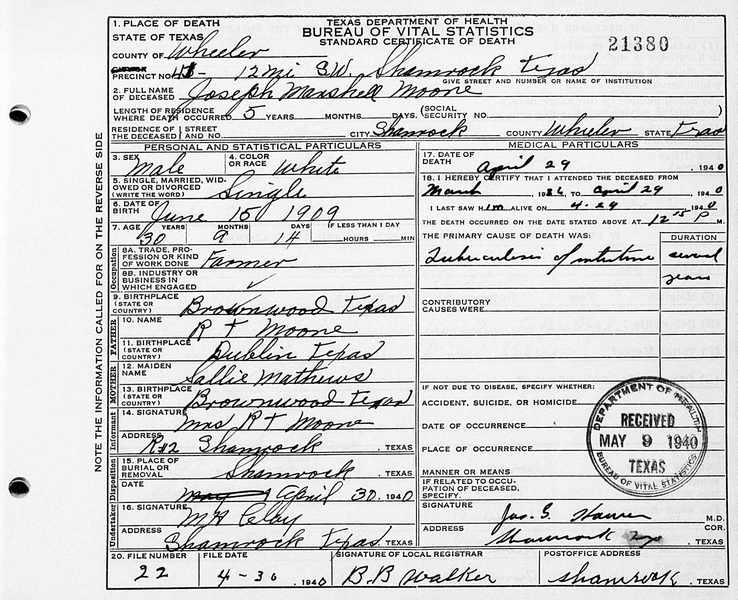 TEXAS DEPARTMENT OF HEALTH
BUREAU OF VITAL STATISTICS
STANDARD CERTIFICATE OF DEATH
21380
1. PLACE OF DEATH
STATE OF TEXAS
COUNTY OF Wheeler
PRECINCT NO. 12 mi S.W. Shamrock Texas
GIVE STREET AND NUMBER OR NAME OF INSTITUTION
2. FULL NAME OF DECEASED Joseph Marshall Moone
LENGTH OF RESIDENCE WHERE DEATH OCCURRED 5 YEARS MONTHS DAYS. (SOCIAL SECURITY NO.)
RESIDENCE OF THE DECEASED STREET AND NO. CITY Shamrock COUNTY Wheeler STATE Texas
PERSONAL AND STATISTICAL PARTICULARS
3. SEX Male 4. COLOR OR RACE White
5. SINGLE, MARRIED, WIDOWED OR DIVORCED (WRITE THE WORD) Single
6. DATE OF BIRTH June 15 1909
7. AGE YEARS MONTHS DAYS IF LESS THAN 1 DAY
30 9 14 HOURS MIN
Occupation
8A. TRADE, PROFESSION OR KIND OF WORK DONE Farmer
8B. INDUSTRY OR BUSINESS IN WHICH ENGAGED ✓
9. BIRTHPLACE (STATE OR COUNTRY) Brownwood Texas
FATHER
10. NAME R T Moone
11. BIRTHPLACE (STATE OR COUNTRY) Dublin Texas
MOTHER
12. MAIDEN NAME Sallie Mathews
13. BIRTHPLACE (STATE OR COUNTRY) Brownwood Texas
Informant
14. SIGNATURE Mrs R T Moone
ADDRESS R#2 Shamrock, TEXAS
Disposition
15. PLACE OF BURIAL OR REMOVAL Shamrock, TEXAS
DATE April 30, 1940
Undertaker
16. SIGNATURE Clay
ADDRESS Shamrock Texas, TEXAS
MEDICAL PARTICULARS
17. DATE OF DEATH April 29, 1940
18. I HEREBY CERTIFY THAT I ATTENDED THE DECEASED FROM
March 1936 TO April 29 1940
I LAST SAW Him ALIVE ON 4-29 1940
THE DEATH OCCURRED ON THE DATE STATED ABOVE AT 12 15 P M.
THE PRIMARY CAUSE OF DEATH WAS: DURATION
Tuberculosis of intestine several years
CONTRIBUTORY CAUSES WERE:
IF NOT DUE TO DISEASE, SPECIFY WHETHER:
ACCIDENT, SUICIDE, OR HOMICIDE
DATE OF OCCURRENCE
PLACE OF OCCURRENCE
MANNER OR MEANS
IF RELATED TO OCCUPATION OF DECEASED, SPECIFY.
SIGNATURE Jas. G. M.D.
COR.
ADDRESS Shamrock Tex, TEXAS
DEPARTMENT OF HEALTH
RECEIVED
MAY 9 1940
TEXAS
BUREAU OF VITAL STATISTICS
20. FILE NUMBER FILE DATE SIGNATURE OF LOCAL REGISTRAR POSTOFFICE ADDRESS
22 4-30 1940 B.B Walker Shamrock, TEXAS
NOTE THE INFORMATION CALLED FOR ON THE REVERSE SIDE